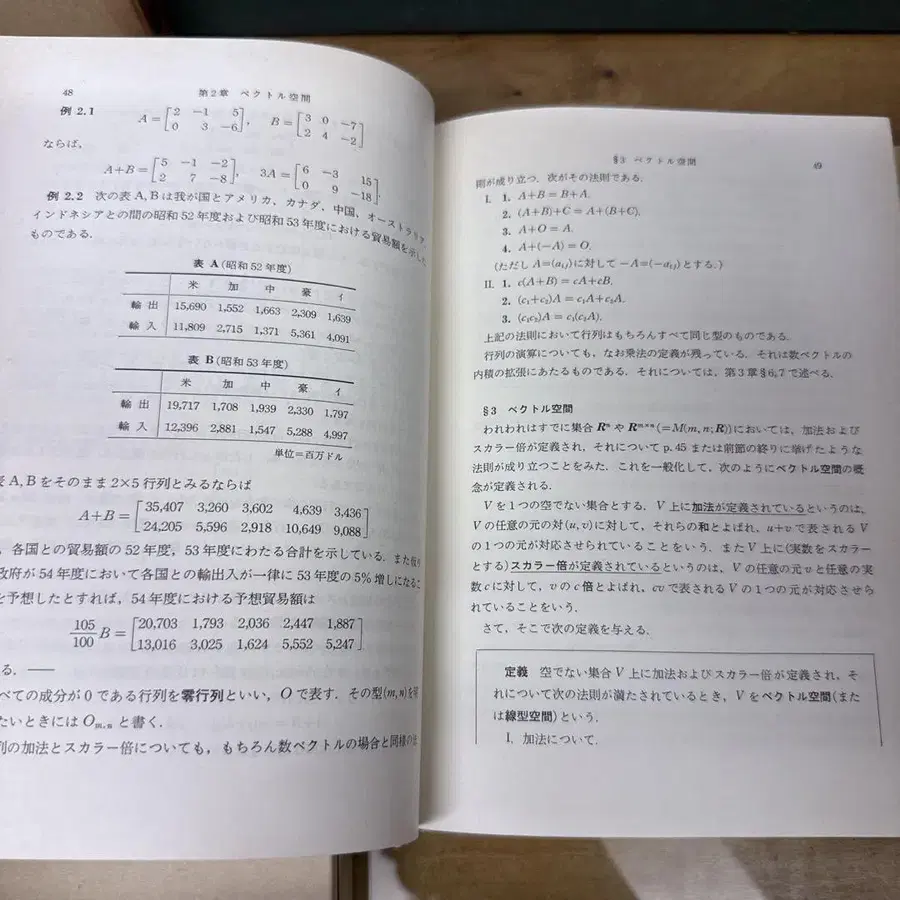 48 第2章 ベクトル空間
例 2.1 A=[2 -1 5 / 0 3 -6], B=[3 0 -7 / 2 4 -2]
ならば,
A+B=[5 -1 -2 / 2 7 -8], 3A=[6 -3 15 / 0 9 -18]
例 2.2 次の表 A, B は我が国とアメリカ, カナダ, 中国, オーストラリア,
インドネシアとの間の昭和 52 年度および昭和 53 年度における貿易額を示した
ものである.
表 A (昭和 52 年度)
米 加 中 豪 イ
輸出 15,690 1,552 1,663 2,309 1,639
輸入 11,809 2,715 1,371 5,361 4,091
表 B (昭和 53 年度)
米 加 中 豪 イ
輸出 19,717 1,708 1,939 2,330 1,797
輸入 12,396 2,881 1,547 5,288 4,997
単位=百万ドル
表 A, B をそのまま 2×5 行列とみるならば
A+B=[35,407 3,260 3,602 4,639 3,436 / 24,205 5,596 2,918 10,649 9,088]
, 各国との貿易額の 52 年度, 53 年度にわたる合計を示している. また
政府が 54 年度において各国との輸出入が一律に 53 年度の 5% 増しになるこ
を予想したとすれば, 54 年度における予想貿易額は
105/100 B=[20,703 1,793 2,036 2,447 1,887 / 13,016 3,025 1,624 5,552 5,247]
る. ——
べての成分が 0 である行列を零行列といい, O で表す. その型(m, n)を
たいときには Om,n と書く.
列の加法とスカラー倍についても, もちろん数ベクトルの場合と同様の法
§3 ベクトル空間 49
則が成り立つ. 次がその法則である.
I. 1. A+B=B+A.
2. (A+B)+C=A+(B+C).
3. A+O=A.
4. A+(-A)=O.
(ただし A=(aij)に対して -A=(-aij)とする.)
II. 1. c(A+B)=cA+cB.
2. (c1+c2)A=c1A+c2A.
3. (c1c2)A=c1(c2A).
上記の法則において行列はもちろんすべて同じ型のものである.
行列の演算についても, なお乗法の定義が残っている. それは数ベクトルの
内積の拡張にあたるものである. それについては, 第3章§6,7で述べる.
§3 ベクトル空間
われわれはすでに集合 Rn や Rm×n(=M(m, n; R))においては, 加法および
スカラー倍が定義され, それについて p. 45 または前節の終りに挙げたような
法則が成り立つことをみた. これを一般化して, 次のようにベクトル空間の概
念が定義される.
V を1つの空でない集合とする. V 上に加法が定義されているというのは,
V の任意の元の対(u, v)に対して, それらの和とよばれ, u+v で表される V
の1つの元が対応させられていることをいう. また V 上に(実数をスカラー
とする)スカラー倍が定義されているというのは, V の任意の元 v と任意の実
数 c に対して, v の c 倍とよばれ, cv で表される V の1つの元が対応させら
れていることをいう.
さて, そこで次の定義を与える.
定義 空でない集合 V 上に加法およびスカラー倍が定義され, そ
れについて次の法則が満たされているとき, V をベクトル空間(また
は線型空間)という.
I. 加法について.